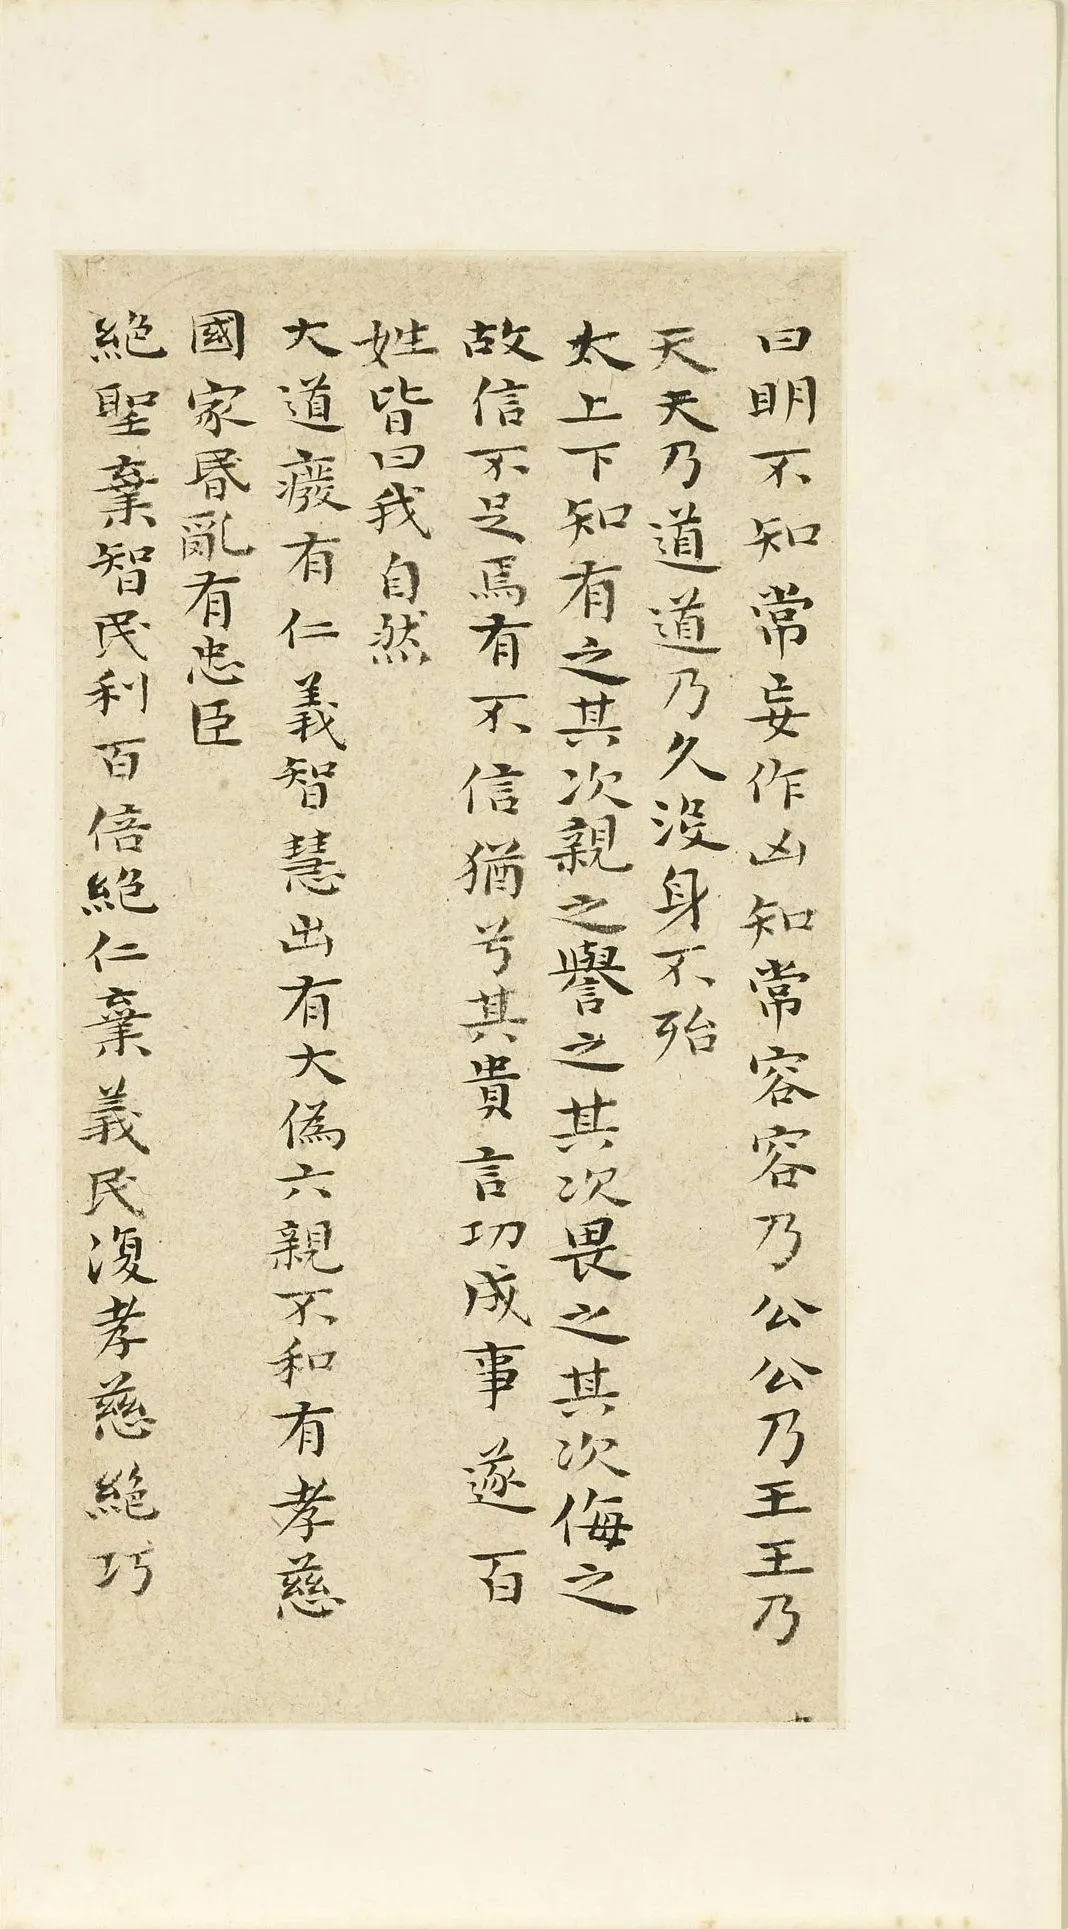 曰明不知常妄作凶知常容容乃公公乃王王乃
天天乃道道乃久沒身不殆
太上下知有之其次親之譽之其次畏之其次侮之
故信不足焉有不信猶兮其貴言功成事遂百
姓皆曰我自然
大道癈有仁義智慧出有大偽六親不和有孝慈
國家昬亂有忠臣
絕聖棄智民利百倍絕仁棄義民復孝慈絕巧